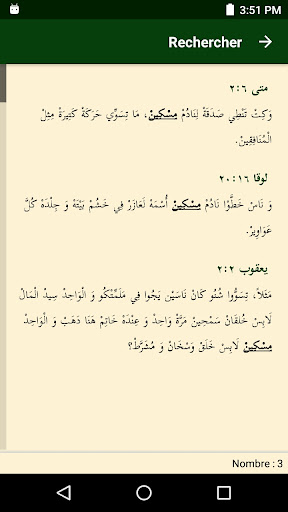 3:51 PM
Rechercher
متى ٦:٢
وَكِتْ تَنْطِي صَدَقَةْ لِنَادُمْ مِسْكِينْ، مَا تِسَوِّي حَرَكَةْ كَتِيرَةْ مِثِلْ
الْمُنَافِقِينْ.
لوقا ١٦:٢٠
وَ نَاسْ خَطَّوْا نَادُمْ مِسْكِينْ أُسْمَهْ لَعَازَرْ فِي خَشُمْ بَيْتَهْ وَ جِلْدَهْ كُلَّ
عَوَاوِيرْ.
يعقوب ٢:٢
مَثَلًا، تِسَوُّوا شُنُو كَانْ نَاسَيْن يَجُوا فِي مَلَمِّتْكُو وَ الْوَاحِدْ سِيدْ الْمَالْ
لَابِسْ خُلْقَانْ سَمْحِينْ مَرَّةْ وَاحِدْ وَ عِنْدَهْ خَاتِمْ هَنَا دَهَبْ وَ الْوَاحِدْ
مِسْكِينْ لَابِسْ خَلَقْ وَسْخَانْ وَ مُشَرَّطْ؟
Nombre : 3